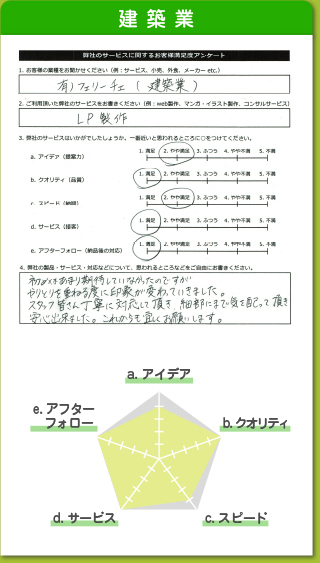 建築業
弊社のサービスに関するお客様満足度アンケート
1. お客様の業種をお聞かせください（例：サービス、小売、外食、メーカー etc.）
有）フェリーチェ（建築業）
2. ご利用頂いた弊社のサービスをお書きください（例：web製作、マンガ・イラスト製作、コンサルサービス）
LP製作
3. 弊社のサービスはいかがでしたでしょうか。一番近いと思われるところに○をつけてください。
a. アイデア（提案力） 1. 満足 2. やや満足 3. ふつう 4. やや不満 5. 不満
b. クオリティ（品質） 1. 満足 2. やや満足 3. ふつう 4. やや不満 5. 不満
c. スピード（納期） 1. 満足 2. やや満足 3. ふつう 4. やや不満 5. 不満
d. サービス（接客） 1. 満足 2. やや満足 3. ふつう 4. やや不満 5. 不満
e. アフターフォロー（納品後の対応） 1. 満足 2. やや満足 3. ふつう 4. やや不満 5. 不満
4. 弊社の製品・サービス・対応などについて、思われるところなどをご自由にお書きください。
初めはあまり期待していなかったのですが
やりとりを重ねる度に印象が変わっていきました。
スタッフ皆さん丁寧に対応して頂き、細部にまで気を配って頂き
安心出来ました。これからも宜しくお願いします。
a. アイデア
b. クオリティ
c. スピード
d. サービス
e. アフター
フォロー